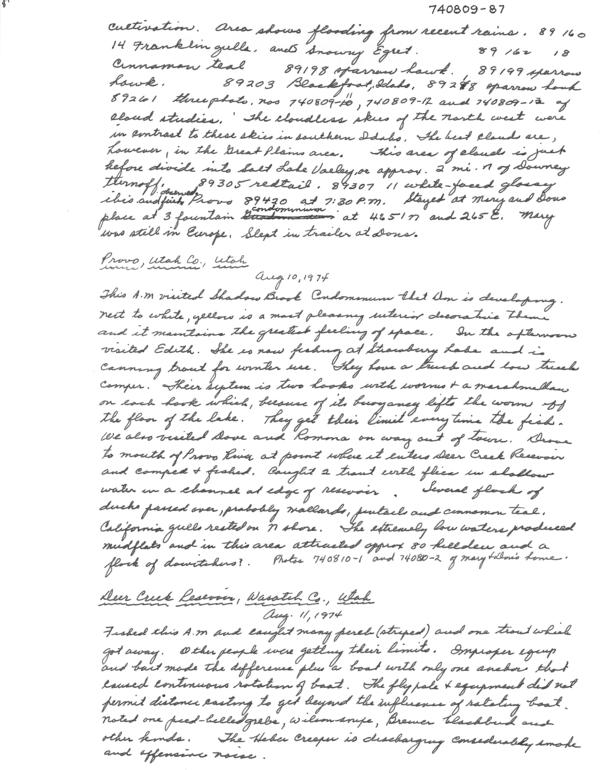 740809-87
cultivation. Area shows flooding from recent rains. 89160
14 Franklin gulls. and Snowy Egret. 89162 18
Cinnamon teal 89198 sparrow hawk. 89199 sparrow
hawk. 89203 Blackfoot, Idaho. sparrow hawk
89261 three photo. nos 740809-10, 740809-12 and 740809-13 of
cloud studies. The cloudless skies of the north west were
in contrast to these skies in southern Idaho. The best clouds are,
however, in the Great Plains area. This area of clouds is just
before divide into Salt Lake Valley, or approx. 2 mi. N of Downey
turnoff. 89305 redtail. 89307 11 white-faced glossy
ibis and Provo 89420 at 7:30 P.M. Stayed at Mary and Dons
place at 3 fountain condominium at 4651 N and 265 E. Mary
was still in Europe. Slept in trailer at Dons.
Provo, Utah Co., Utah
Aug 10, 1974
This A.M visited Shadow Brook Condominum that Don is developing.
next to white, yellow is a most pleasing interior decorative theme
and it maintains the greatest feeling of space. In the afternoon
visited Edith. She is now fishing at Strawbury Lake and is
canning trout for winter use. They have a truck and low truck
camper. Their system is two hooks with worms + a marshmellow
on each hook which, because of its buoyancy lifts the worm off
the floor of the lake. They get their limit every time the fish.
We also visited Dove and Romona on way out of town. Drove
to mouth of Provo River at point where it enters Deer Creek Resevoir
and camped + fished. Caught 2 trout with flies in shallow
water in a channel at edge of resevoir. Several flock of
ducks passed over, probably mallards, pintail and cinnamon teal.
California gulls rested on N shore. The extremely low waters produced
mudflats and in this area attracted approx 80 killdeer and a
flock of dowitchers?. Photos 740810-1 and 74080-2 of mary + Don's home.
Deer Creek Resevoir, Wasatch Co., Utah
Aug. 11, 1974
Fished this A.M and caught many perch (striped) and one trout which
got away. Other people were getting their limits. Improper equip
and bait made the difference plus a boat with only one anchor that
caused continuous rotation of boat. The fly pole + equipment did not
permit distance casting to get beyond the influence of rotating boat.
Noted one pied-billed grebe, Wilson snipe, Brewer blackbird and
other birds. The Heber Creeper is discharging considerably smoke
and offensive noise.